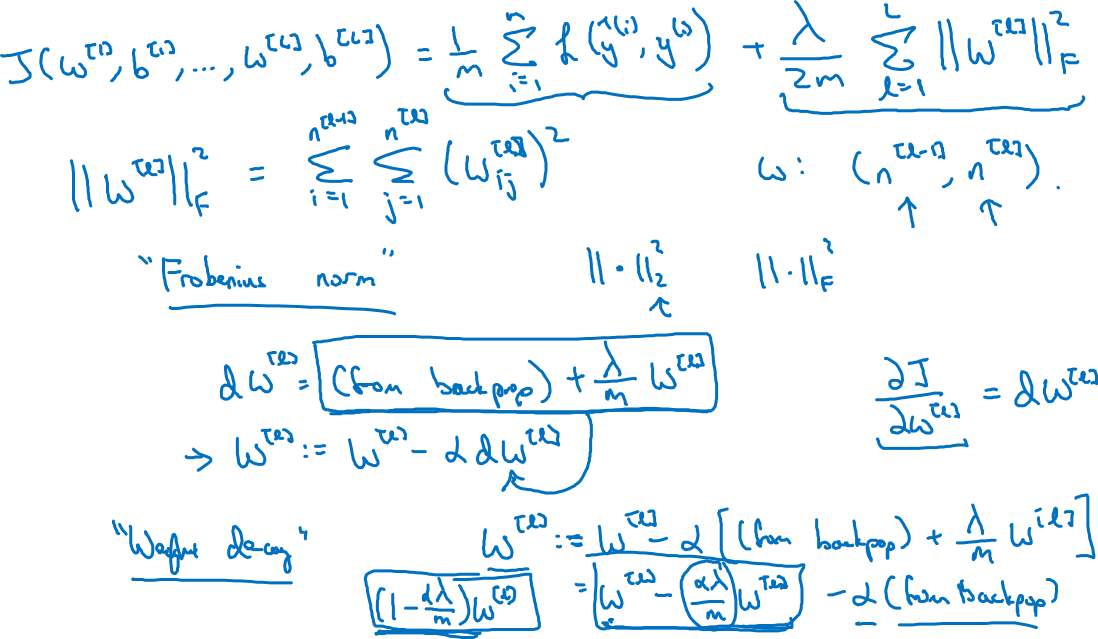 J(w^[1], b^[1], ..., w^[L], b^[L]) = 1/m ∑_{i=1}^{m} L(ŷ^(i), y^(i)) + λ/2m ∑_{l=1}^{L} ||w^[l]||_F^2
||w^[l]||_F^2 = ∑_{i=1}^{n^[l-1]} ∑_{j=1}^{n^[l]} (w_ij^[l])^2 w: (n^[l-1], n^[l]).
"Frobenius norm" ||·||_2^2 ||·||_F^2
dw^[l] = (from backprop) + λ/m w^[l] ∂J/∂w^[l] = dw^[l]
→ w^[l] := w^[l] - α dw^[l]
"Weight decay" w^[l] := w^[l] - α [(from backprop) + λ/m w^[l]]
(1 - αλ/m) w^[l] = w^[l] - αλ/m w^[l] - α (from backprop)